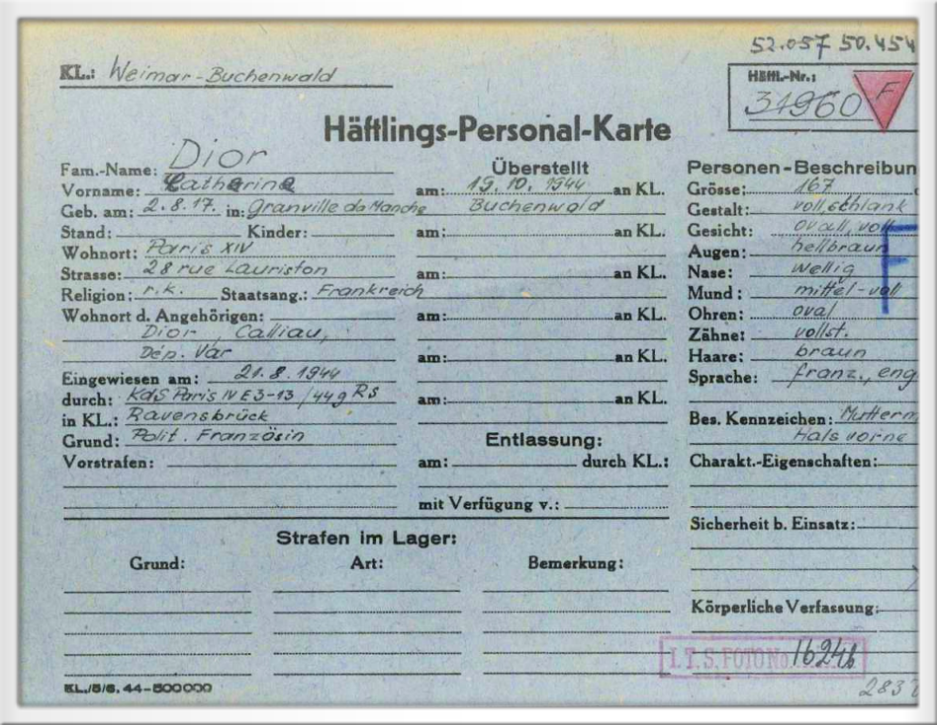 52.057 50.454
KL.: Weimar-Buchenwald
Häftl.-Nr.:
31960 F
Häftlings-Personal-Karte
Fam.-Name: Dior
Vorname: Catherine
Geb. am: 2.8.17. in: Granville da Manche
Stand: Kinder:
Wohnort: Paris XIV
Strasse: 28 rue Lauriston
Religion: r.k. Staatsang.: Frankreich
Wohnort d. Angehörigen:
Dior, Calliau,
Dép. Var
Eingewiesen am: 21.8.1944
durch: KdS Paris IV E3-13/44g RS
in KL.: Ravensbrück
Grund: Polit. Französin
Vorstrafen:
Überstellt
am: 19.10.1944 an KL.
Buchenwald
am: an KL.
am: an KL.
am: an KL.
am: an KL.
am: an KL.
Entlassung:
am: durch KL.:
mit Verfügung v.:
Personen-Beschreibun
Grösse: 167
Gestalt: vollschlank
Gesicht: oval, voll
Augen: hellbraun
F
Nase: wellig
Mund: mittel-voll
Ohren: oval
Zähne: vollst.
Haare: braun
Sprache: franz., eng
Bes. Kennzeichen: Mutterm
Hals vorne
Charakt.-Eigenschaften:
Sicherheit b. Einsatz:
Körperliche Verfassung:
Strafen im Lager:
Grund: Art: Bemerkung:
I.T.S. FOTO No.
KL./5/6. 44-500000
283